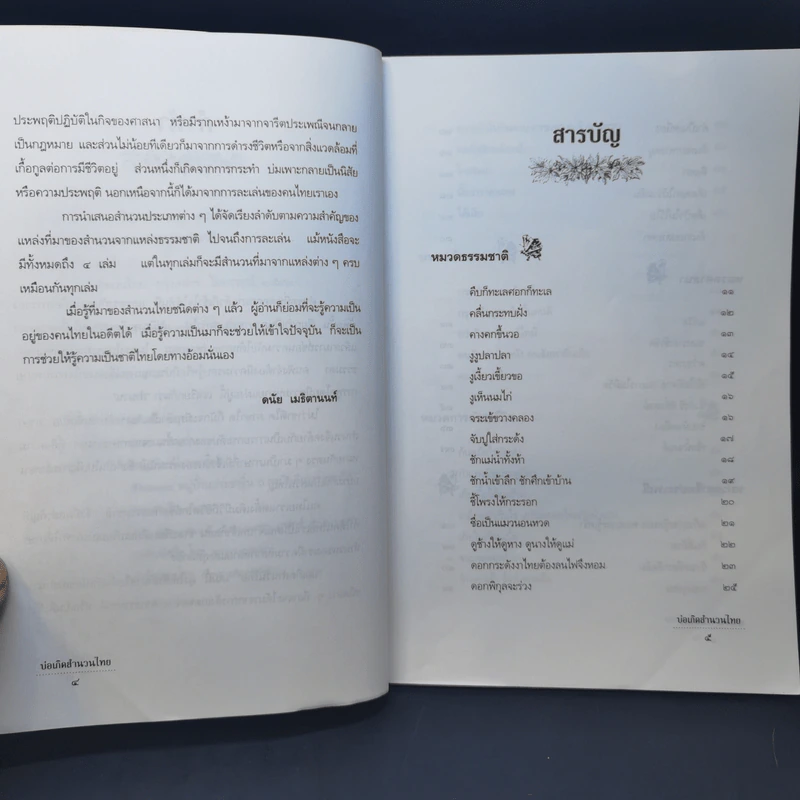 ประพฤติปฏิบัติในกิจของศาสนา หรือมีรากเหง้ามาจากจารีตประเพณีจนกลาย
เป็นกฎหมาย และส่วนไม่น้อยทีเดียวก็มาจากการดำรงชีวิตหรือจากสิ่งแวดล้อมที่
เกื้อกูลต่อการมีชีวิตอยู่ ส่วนหนึ่งก็เกิดจากการกระทำ บ่มเพาะกลายเป็นนิสัย
หรือความประพฤติ นอกเหนือจากนี้ก็ได้มาจากการละเล่นของคนไทยเราเอง
การนำเสนอสำนวนประเภทต่าง ๆ ได้จัดเรียงลำดับตามความสำคัญของ
แหล่งที่มาของสำนวนจากแหล่งธรรมชาติ ไปจนถึงการละเล่น แม้หนังสือจะ
มีทั้งหมดถึง ๔ เล่ม แต่ในทุกเล่มก็จะมีสำนวนที่มาจากแหล่งต่าง ๆ ครบ
เหมือนกันทุกเล่ม
เมื่อรู้ที่มาของสำนวนไทยชนิดต่าง ๆ แล้ว ผู้อ่านก็ย่อมที่จะรู้ความเป็น
อยู่ของคนไทยในอดีตได้ เมื่อรู้ความเป็นมาก็จะช่วยให้เข้าใจปัจจุบัน ก็จะเป็น
การช่วยให้รู้ความเป็นชาติไทยโดยทางอ้อมนั่นเอง
ดนัย เมธิตานนท์
บ่อเกิดสำนวนไทย
๔
สารบัญ
หมวดธรรมชาติ
คืบก็ทะเลศอกก็ทะเล ๑๑
คลื่นกระทบฝั่ง ๑๒
คางคกขึ้นวอ ๑๓
งูงูปลาปลา ๑๔
งูเงี้ยวเขี้ยวขอ ๑๕
งูเห็นนมไก่ ๑๖
จระเข้ขวางคลอง ๑๖
จับปูใส่กระด้ง ๑๗
ชักแม่น้ำทั้งห้า ๑๘
ชักน้ำเข้าลึก ชักศึกเข้าบ้าน ๑๙
ชี้โพรงให้กระรอก ๒๐
ซื่อเป็นแมวนอนหวด ๒๑
ดูช้างให้ดูหาง ดูนางให้ดูแม่ ๒๒
ดอกกระดังงาไทยต้องลนไฟจึงหอม ๒๓
ดอกพิกุลจะร่วง ๒๕
บ่อเกิดสำนวนไทย
๕